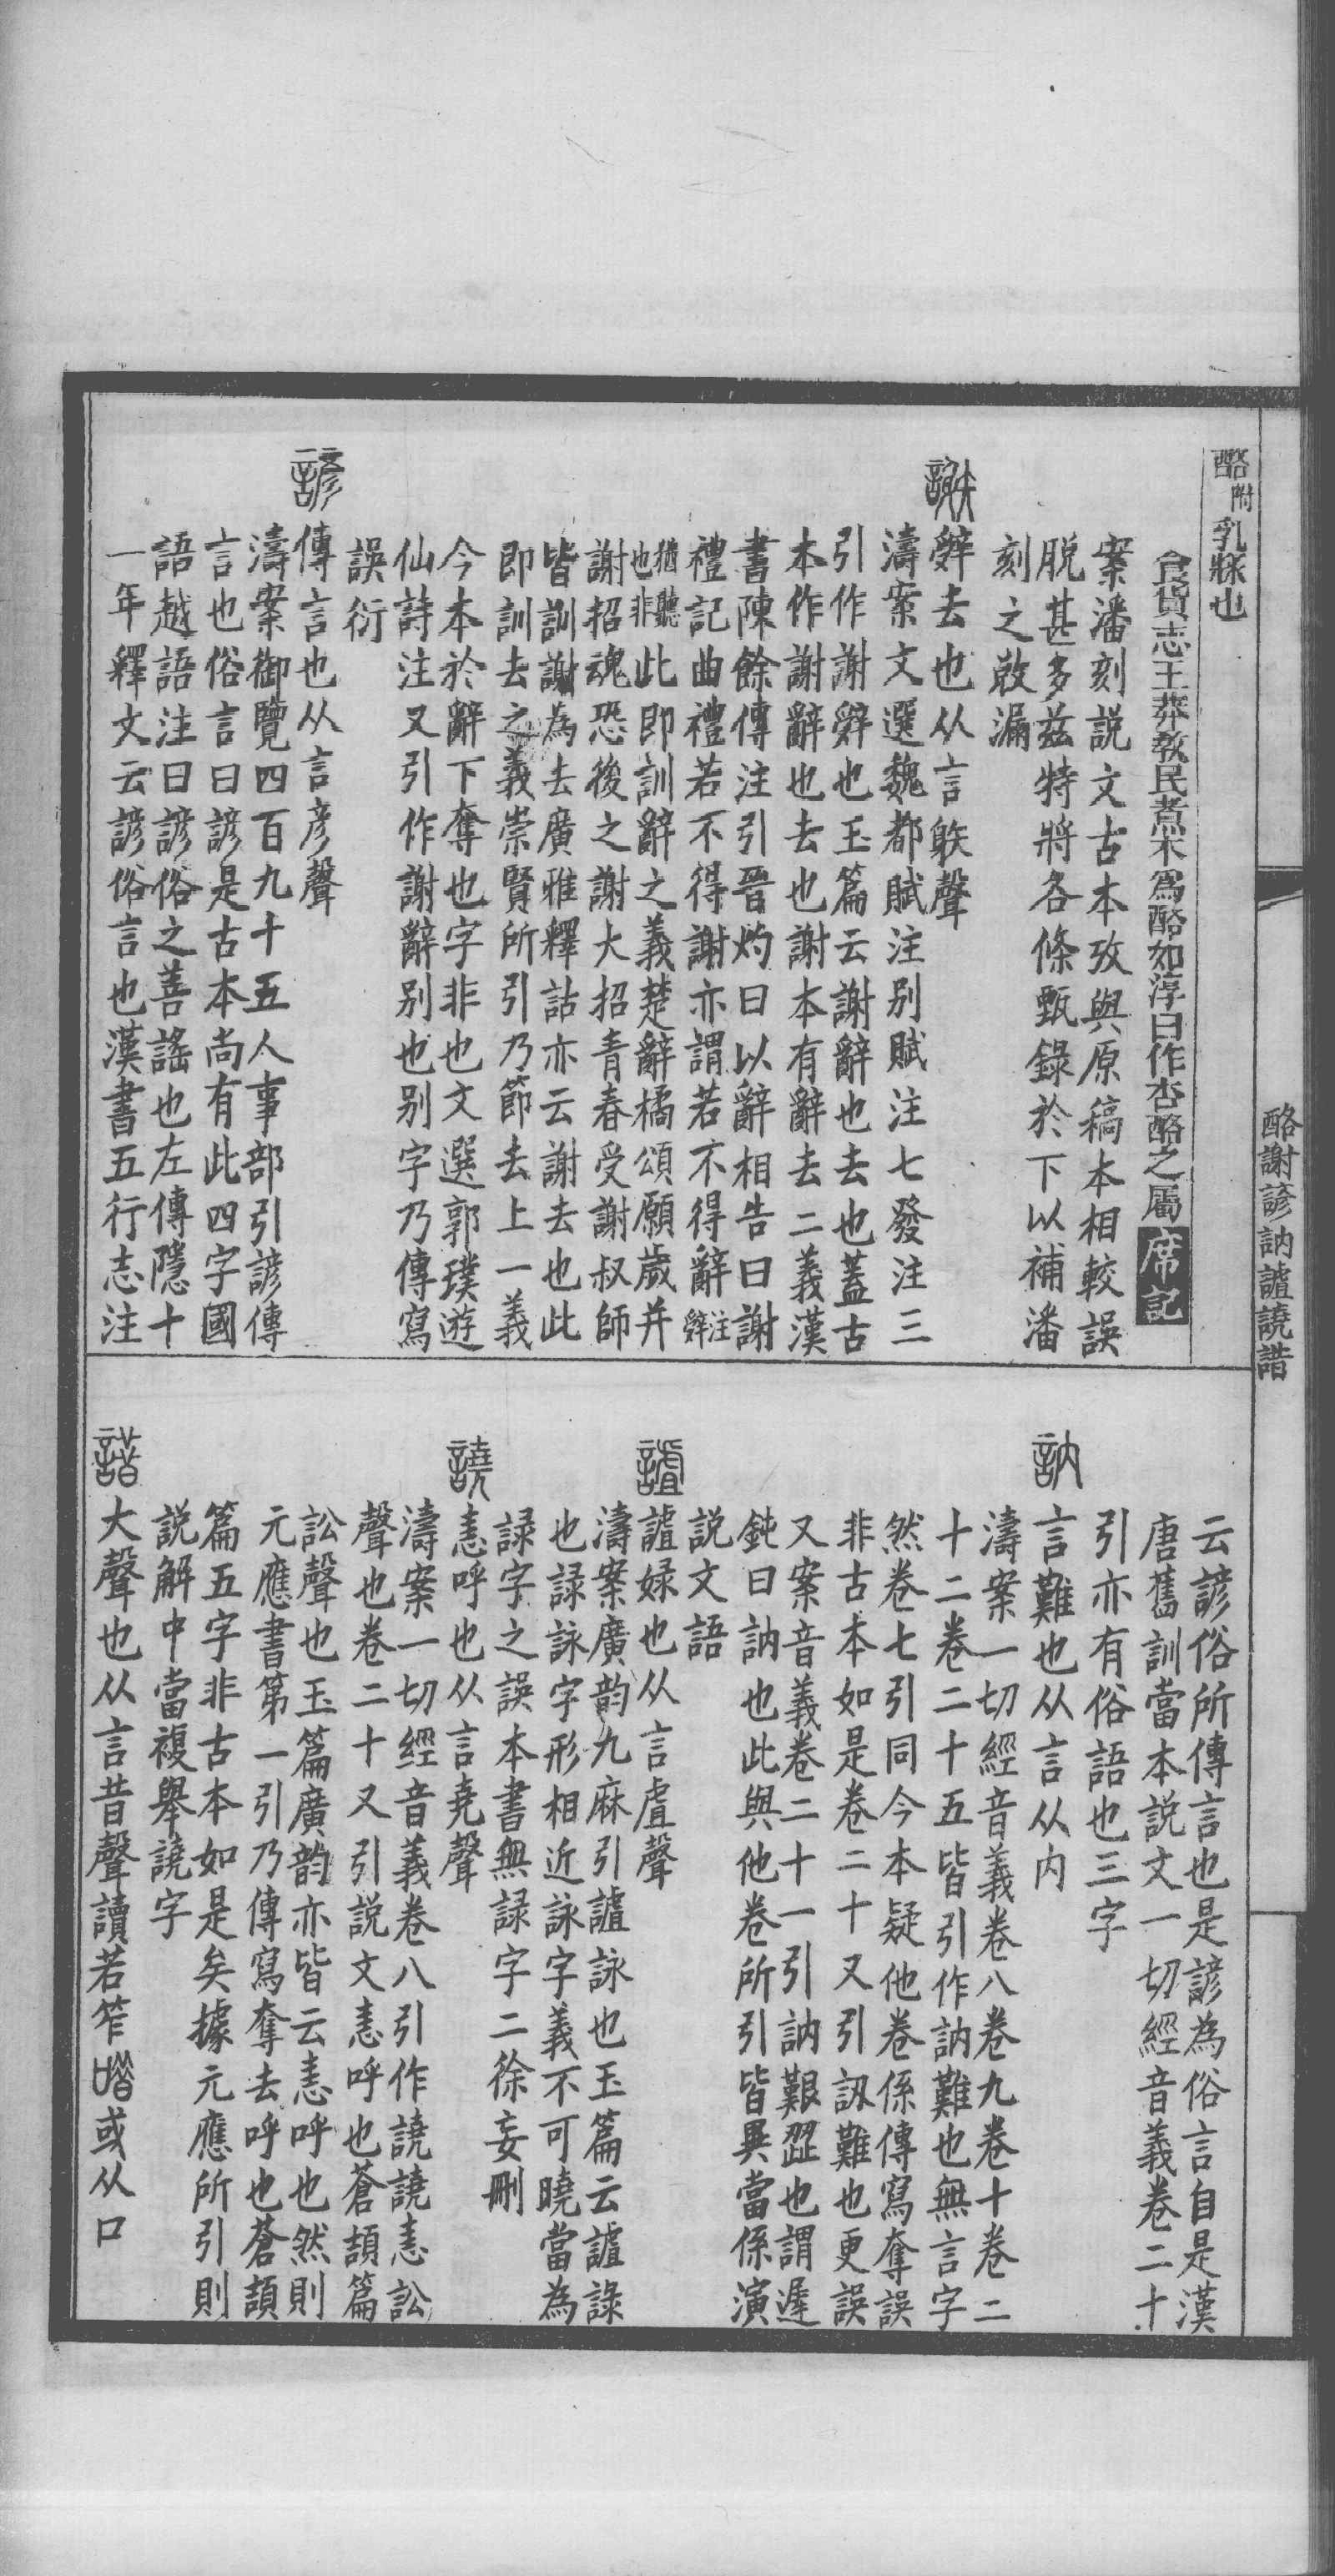 酪附乳䴬也
食貨志王莽敎民煮木爲酪如淳曰作杏酪之屬席記
案潘刻說文古本攷與原稿本相較誤
脱甚多兹特將各條甄錄於下以補潘
刻之敚漏
謝
辤去也从言躲聲
濤案文選魏都賦注别賦注七發注三
引作謝辤也玉篇云謝辭也去也蓋古
本作謝辭也去也謝本有辭去二義漢
書陳餘傳注引晉灼曰以辭相告曰謝
禮記曲禮若不得謝亦謂若不得辭注辤
猶聽也非此即訓辭之義楚辭橘頌願歲并
謝招魂恐後之謝大招青春受謝叔師
皆訓謝為去廣雅釋詁亦云謝去也此
即訓去之義崇賢所引乃節去上一義
今本於辭下奪也字非也文選郭璞遊
仙詩注又引作謝辭别也别字乃傳寫
誤衍
諺
傳言也从言彦聲
濤案御覽四百九十五人事部引諺傳
言也俗言曰諺是古本尚有此四字國
語越語注曰諺俗之善謠也左傳隱十
一年釋文云諺俗言也漢書五行志注
云諺俗所傳言也是諺為俗言自是漢
唐舊訓當本説文一切經音義卷二十
引亦有俗語也三字
訥
言難也从言从内
濤案一切經音義卷八卷九卷十卷二
十二卷二十五皆引作訥難也無言字
然卷七引同今本疑他卷係傳寫奪誤
非古本如是卷二十又引訒難也更誤
又案音義卷二十一引訥艱澀也謂遲
鈍曰訥也此與他卷所引皆異當係演
説文語
謯
謯娽也从言虘聲
濤案廣韵九麻引謯詠也玉篇云謯諑
也諑詠字形相近詠字義不可曉當為
諑字之誤本書無諑字二徐妄刪
譊
恚呼也从言堯聲
濤案一切經音義卷八引作譊譊恚訟
聲也卷二十又引説文恚呼也蒼頡篇
訟聲也玉篇廣韵亦皆云恚呼也然則
元應書第一引乃傳寫奪去呼也蒼頡
篇五字非古本如是矣據元應所引則
説解中當複舉譊字
諎
大聲也从言昔聲讀若笮唶或从口
酪謝諺訥謯譊諎